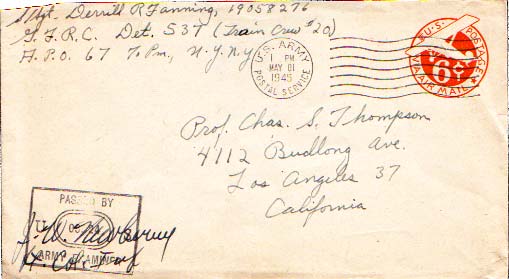 S/Sgt. Derrill R Fanning, 19058276
G.F.R.C. Det. S37 (Train Crew #20)
A.P.O. 67 % P.M., N.Y. N.Y.
U.S. ARMY
1 PM
MAY 01
1945
POSTAL SERVICE
U.S. POSTAGE
6¢
VIA AIR MAIL
Prof. Chas. S. Thompson
4112 Budlong Ave.
Los Angeles 37
California
PASSED BY
U
ARMY EXAMINER
Lt. Col.